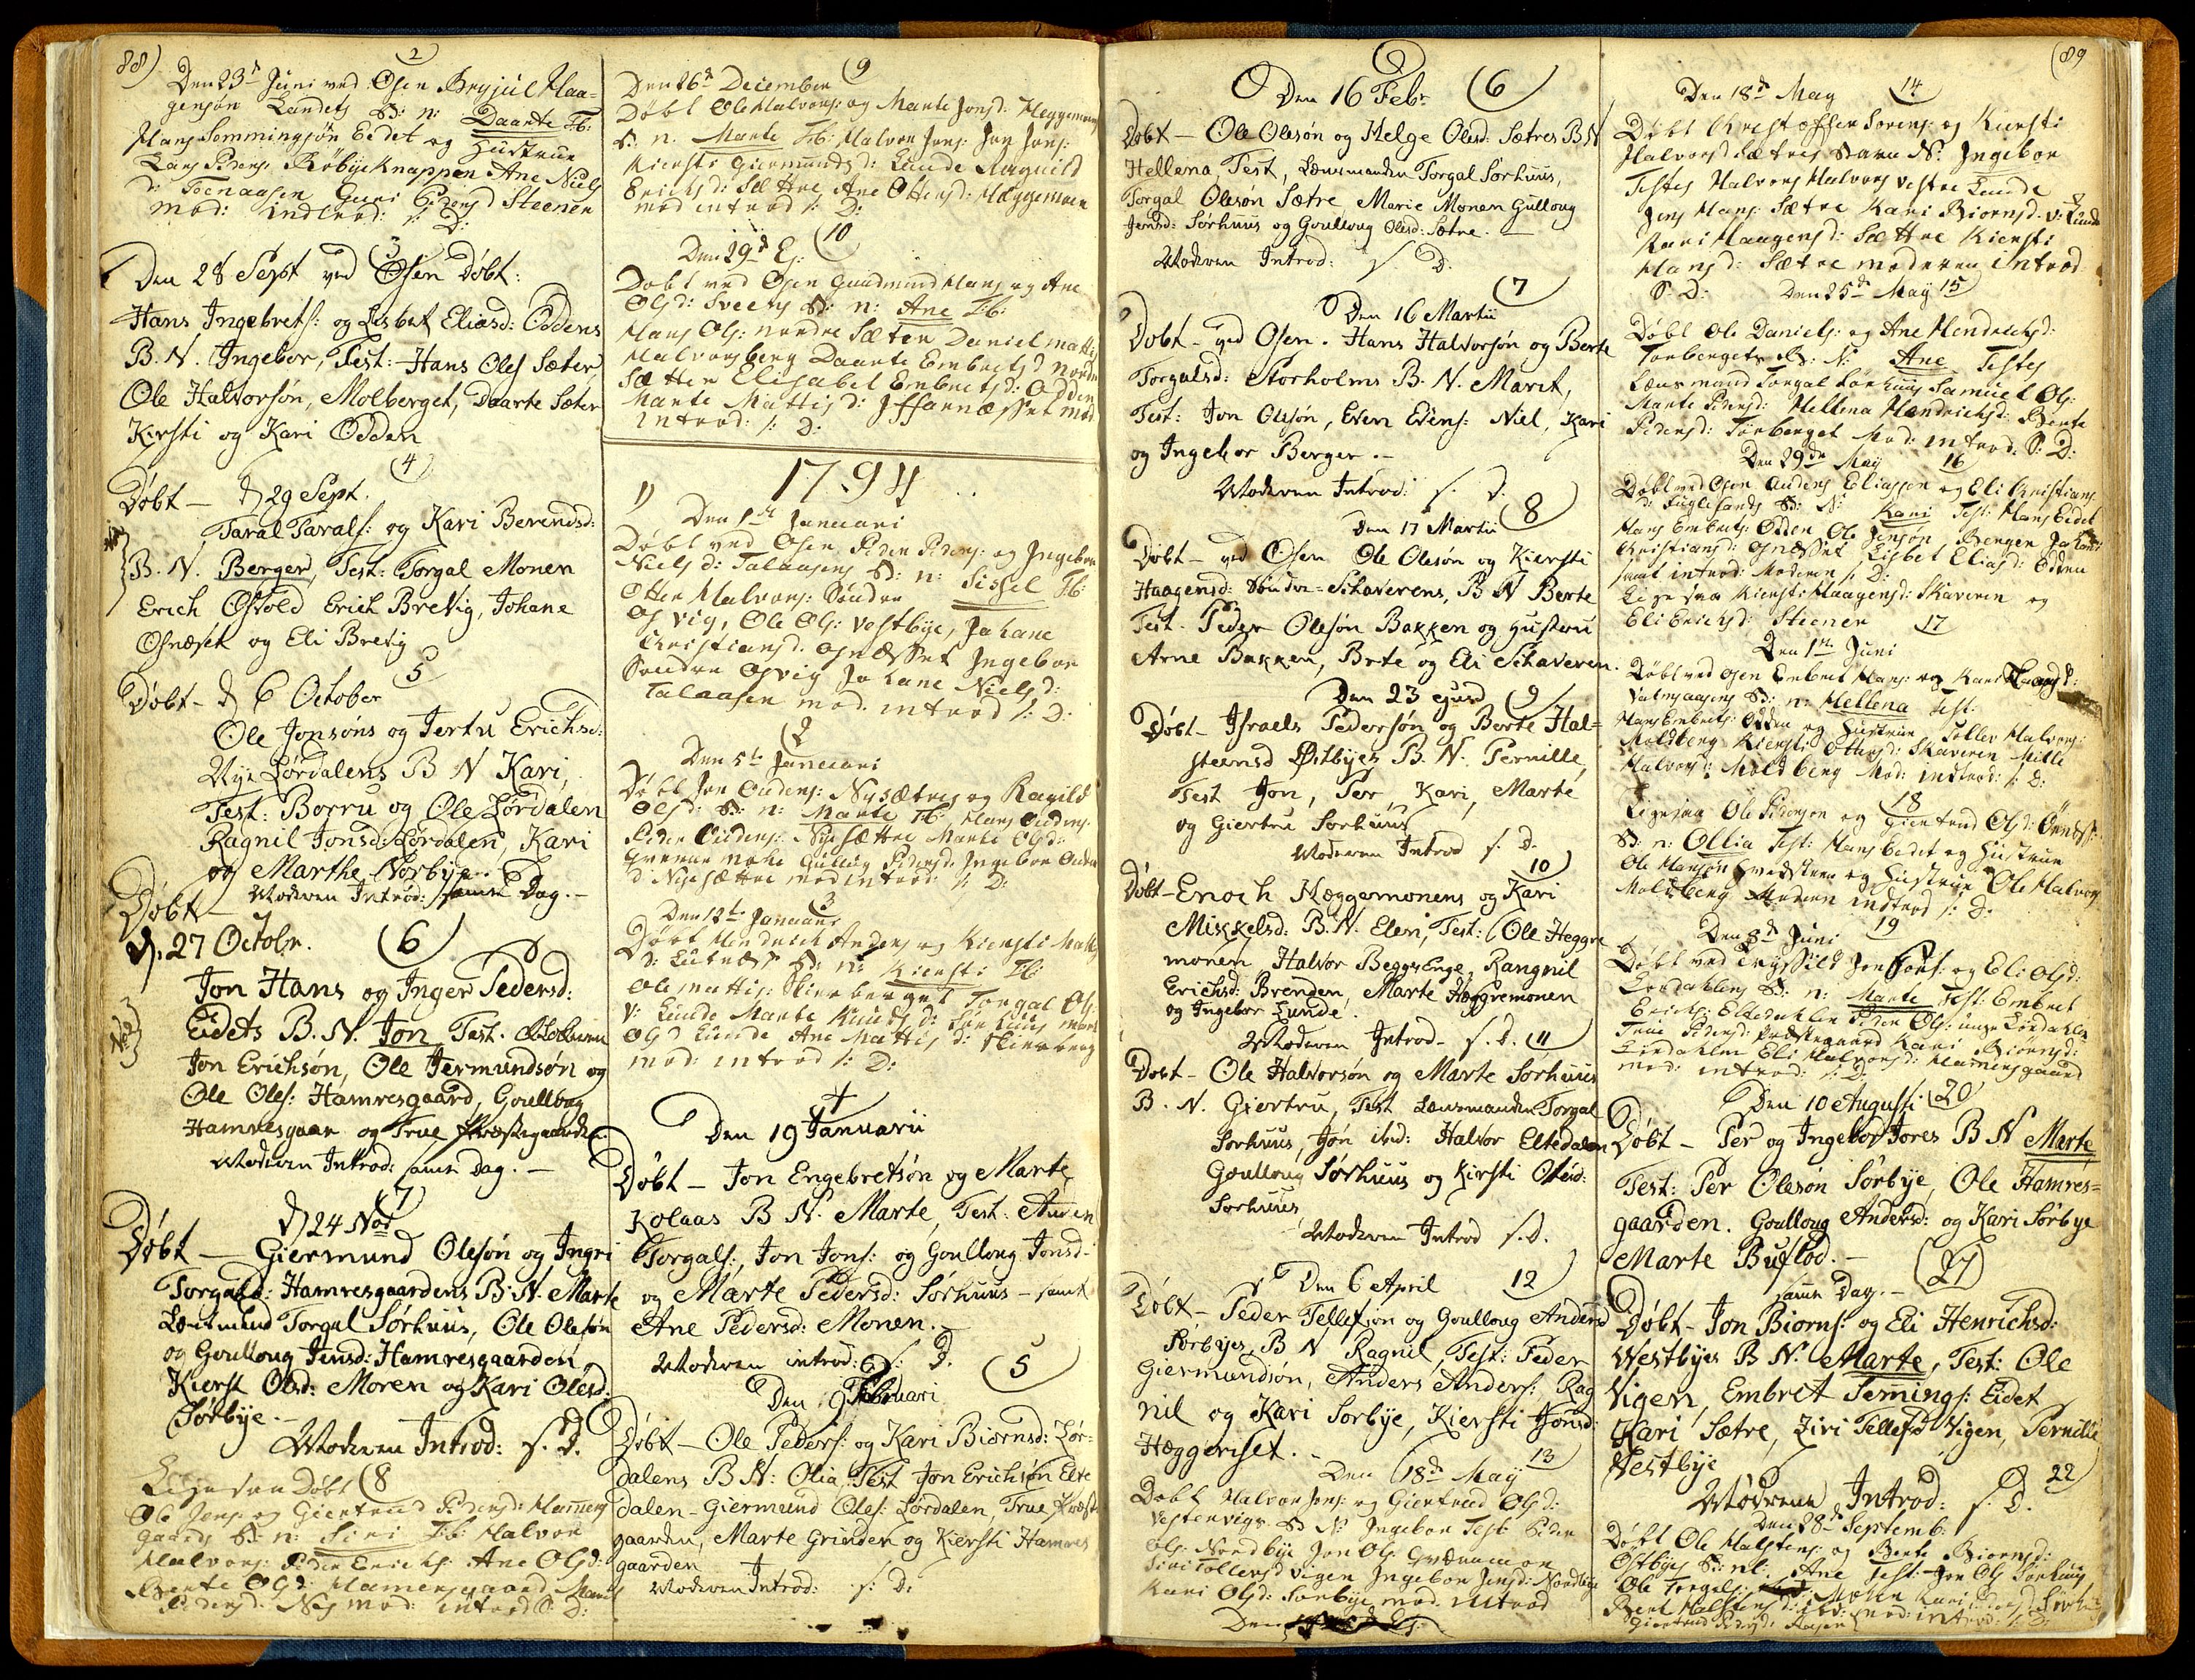 88)
2
Den 23d Juni ved Osen Brynjul Haa=
gensøn Landets B: n: Daarte Tb:
Hans Sommingsøn Eidet og Hustrue
Lars Peders: Røbyeknappen Ane Niels
d: Toenaasen Guri Pedersd Steenen
mod: indtrod: s: D:
3
Den 28 Sept ved Osen Døbt:
Hans Ingebrets: og Lisbet Eliasd: Oddens
B. N. Ingebor, Test: Hans Oles Sæter,
Ole Halvorsøn, Molberget, Daarte Sæter
Kirsti og Kari Odden
4
Døbt — d 29 Sept.
Taral Tarals: og Kari Berendsd:
B. N. Berger, Test: Torgal Monen
Erich Osvold Erich Brevig, Johane
Osnæset og Eli Brevig
5
Døbt - d 6 October
Ole Jonsøns og Jertru Erichsd:
Nye Lørdalens B N Kari,
Test: Borru og Ole Lørdalen
Ragnil Jonsd: Lørdalen, Kari
og Marthe Nørbye.
Moderen Introd: samme Dag. -
Døbt —
d. 27 Octobr.
6
Jon Hans og Inger Pedersd:
Eidets B. N. Jon Test.
Jon Erichsøn, Ole Jermundsøn og
Ole Oles: Hamresgaard, Goulloug
Hamresgaar og True Præstegaarden.
Moderen Introd: samme Dag. -
7
d 24 Nov
Døbt — Giermund Olesøn og Ingri
Torgalsd: Hamresgaardens B. N. Marte
Torgal Sørhuus, Ole Olesøn
og Goulloug Jensd: Hamresgaarden
Kierst Olsd: Moren og Kari Olesd:
Sørbye. -
Moderen Introd: s. D.
Ligesaa Døbt 8
Ole Jons: og Giertrud Pedersd: Hamers
gaards B: n: Siri Tb: Halvor
Halvors: Peder Erichs: Ane Olsd:
Berte Olsd: Hamersgaard Marit
Pedersd: Nes mod: introd S: D:
Den 26d December 9
Døbt Ole Halvors: og Marte Jonsd: Heggemoens
B. n. Marte Tb: Halvor Jons: Jon Jons:
Kiersti Giermundsd: Lunde Ragnild
Erichsd: Sættre Ane Ottersd: Heggemoen
mod introd s: D:
10
Den 29d Ej:
Døbt ved Osen Guudmund Hans og Ane
Olsd: Sveens B: n: Ane Tb:
Hans Ols: nordre Sæter Daniel Mattis
Halvorsberg Daarte Embretsd Nordre
Sætter Elisabet Embretsd: Odden
Marte Mattisd: mod
introd: s: D:
1794
1)
Den 1te Januari
Døbt ved Osen Peder Peders: og Ingebor
Nielsd: Talaasens B: n: Sissel Tb:
Otter Halvors: Søndre
Osvig, Ole Ols: Vestbye, Johane
Christiansd. Osnæsset Ingebor
Søndre Osvig Johane Nielsd:
Talaasen mod. introd s: D:
2
Den 5te Januari
Døbt Jon Oudens: Nysætres og Ragnild
Olsd: B: n: Marte Tb: Hans Oudens:
Peder Oudens: Nysættre Marte Olsd:
Gullug Pedersd: Ingebor Ouden
d: Nysættre mod introd: s: D:
3
Den 12te Januari
Døbt Hendrich Anders: og Kiersti Matt
d: Lutnæss B: n: Kiersti Tb:
Ole Mattis: Skierberget Torgal Ols:
V: Lunde Marte Knudsd: Sørhuus
Olsd Lunde Ane Mattisd: Skierberg
mod: introd s: D:
4
Den 19 Januarii
Døbt — Jon Engebretsøn og Marte
Kolaas B N. Marte, Test: Auden
Torgals:, Jon Jons: og Goulloug Jonsd-
og Marte Pedersd: Sørhuus - samt
Ane Pedersd: Monen.
Moderen introd: s: D.
5
Den 9 Februari
Døbt — Ole Peders: og Kari Biørnsd: Lør-
dalens B N: Olia, Test Jon Erichsøn Elte
dalen - Giermund Oles: Lørdalen, True Præste
gaarden, Marte Grinden og Kiersti Hamres
gaarden
Moderen Introd: s: D:
Den 16 Febr. 6
Døbt — Ole Olesøn og Helge Olesd: Sætres B N
Hellena, Test, Lensmanden Torgal Sørhuus,
Torgal Olesøn Sætre Marie Monen Gulloug
Jernsd: Sørhuus og Goulloug Olesd: Sætre. —
Moderen Introd: s. D.
7
Den 16 Martii
Døbt - ved Osen. Hans Halvorsøn og Berte
Torgalsd: Storholms B. N. Marit,
Test: Jon Olesøn, Even Evens: Niel, Kari
og Ingebor Berger. —
Moderen Introd: s. D.
8
Den 17 Martii
Døbt - ved Osen Ole Olesøn og Kiersti
Haagensd: Søndre=Skaverens, B N Berte
Test. Peder Olesøn Bakken og Hustru
Arne Bakken, Brte og Eli Skaveren.
Den 23 ejusd 9
Døbt - Israels Pedersøn og Berte Hal=
steensd Østbyes B. N. Pernille,
Test Jon, Per, Kari, Marte
og Giertru Sørhuus
Moderen Introd s. D.
10
Døbt - Enoch Hæggemonens og Kari
Mikkelsd: B. N. Elen, Test: Ole Heggre
monen Halvor BeggsEnge, Rangnil
Erichsd: Brenden, Marte Hæggremonen
og Ingebor Lunde.
Moderen Introd- s. D. 11
Døbt - Ole Halvorsøn og Marte Sørhuus
B. N. Giertru, Test Lensmanden Torgal
Sørhuus, Jon ibid: Halvor Eltedalen
Goulloug Sørhuus og Kirsti Olesd:
Sørhuus
Moderen Introd s. D.
Den 6 April 12
Døbt - Peder Tellefsøn og Goulloug Andersd
Sørbyes, B N Ragnil, Test: Peder
Giermundsøn, Anders Anders: Rag
nil og Kari Sørbye, Kiersti Jonsd:
Hæggeriset. —
Den 18de May 13
Døbt Halvor Jons: og Giertrud Olsd:
Vestervigs B N: Ingebor Test: Peder
Ols: Nordbye Jon Ols: Grænumoe
Siri Tollefsd Vigen Ingebor Jensd: Nordbye
Kari Olsd: Sørbye mod. introd
Den
(89
Den 18de May 14
Døbt Christoffer Sørens: og Kiersti
Halvorsd Sætres Barn N: Ingebor
Testes Halvors Halvors vestre Lunde
Jens Hans: Sætre Kari Biørnsd. V: Lunde
Kari Haagensd: Sættre Kiersti
Hansd: Sætre moderen introd
S. D: Den 25de May 15
Døbt Ole Daniels: og Ane Hendrichsd:
Tørbergets B: N: Ane Testes
Lensmand Torgal Sørhuus Samuel Ols:
Marte Pedersd: Hellena Hendrichsd: Berte
Pedersd: Tørberget Mod: introd. S: D:
Den 29de May 16
Døbt ved Osen Audens Eliassøn og Eli Christians
d: Fuglesands B: N: Kari Test: Hans Eidet
Hans Embrets: Odden Ole Jensøn Bergen Johane
Christiansd: Osnæsset Lisbet Eliasd: Odden
samt introd: Moderen s: D:
Ligesaa Kiersti Haagensd: Skaveren og
Eli Erichsd: Steenen 17
Den 1te Juni
Døbt ved Osen Embret Hans: og Kari Knudsd:
Valmsaasens B: n: Hellena Test:
Hans Embrets: Odden og Hustrue Tollev Halvors:
Moldberg Kiersti Ottersd: Skaveren Mille
Halvorsd: Moldberg Mod: indtrod: s: D:
18
Ligesaa Ole Pedersøn og Giertrud Olsd:
B: n: Ollia Test: Hans Eidet og Hustrue
Ole Hansøn og Hustrue Ole Halvors
Moldberg Moderen indtrod s: D:
19
Den 8de Juni
Døbt ved Tryssild Jon Pouls: og Eli Olsd:
Lørdahlens B: n: Marte Test: Embret
Erichs: Eltedahlen Peder Ols: unge Lørdahlen
True Pedersd: Præstegaard Kari Biørnsd:
Lørdahlen Eli Halvorsd: Hamersgaard
mod: introd: s: D:
Den 10 Augusti 20
Døbt - Per og Ingebor Jores B N Marte
Test: Per Olesøn Sørbye, Ole Hamres=
gaarden. Goulloug Andersd: og Kari Sørbye
Marte Buflød. —
21
samme Dag. —
Døbt - Jon Biørns: og Eli Henrichsd:
Westbyes B N. Marte, Test: Ole
Vigen, Embret Semings: Eidet
Kari Sætre, Ziri Tellefsd Vigen, Pernille
Vestbye
22
Moderen Introd: s. D.
Den 28de Septemb:
Døbt Ole Halstens: og Berte Biørnsd:
Østbyes B: N: Ane Test: Jon Ols Sørhuus
Ole Torgals: Moen Kari Pedersd Sørhuus
Berit Halstensd: mod: introd: s: D:
Giertrud Pedersd: